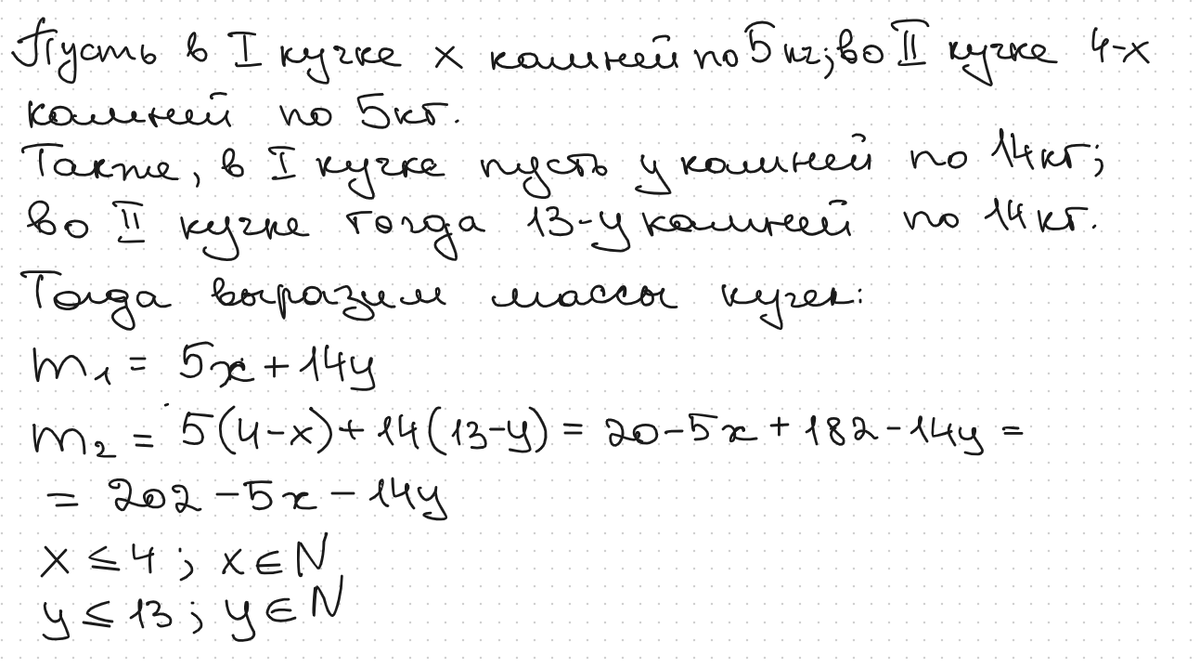 Пусть в I кучке x камней по 5 кг; во II кучке 4-x
камней по 5кг.
Также, в I кучке пусть y камней по 14кг;
во II кучке тогда 13-y камней по 14кг.
Тогда выразим массы кучек:
m₁ = 5x + 14y
m₂ = 5(4-x) + 14(13-y) = 20 - 5x + 182 - 14y =
= 202 - 5x - 14y
x ≤ 4 ; x ∈ N
y ≤ 13 ; y ∈ N